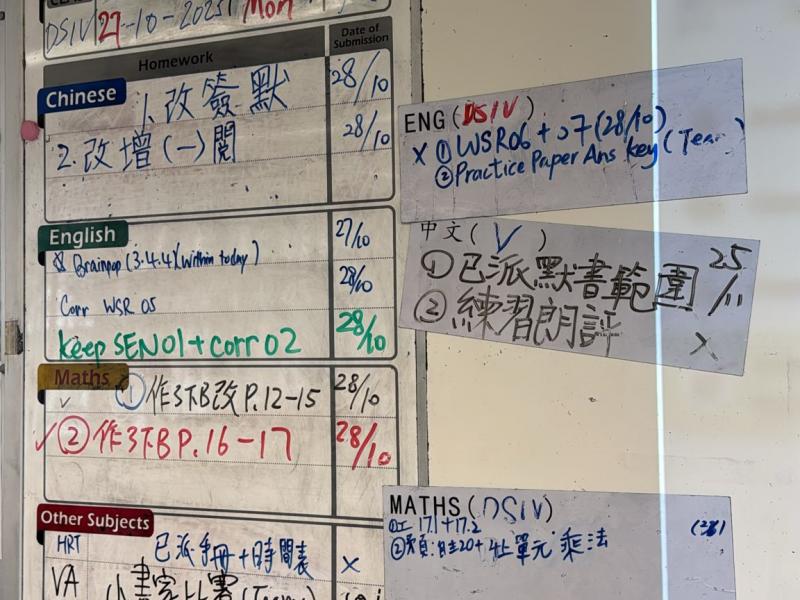 DSIV 27-10-2025 Mon
Homework
Date of Submission
Chinese
1. 改簽默 28/10
2. 改增(一)閱 28/10
English
Brainpop (3.4.4)(within today) 27/10
Corr WSR 05 28/10
keep SEN01+corr 02 28/10
Maths
① 作3下B改P.12-15 28/10
✓② 作3下B P.16-17 28/10
Other Subjects
HRT 已派手冊+時間表 ×
VA 小畫家比賽
ENG(DSIV)
× ① WSR06 + 07 (28/10)
② Practice Paper Ans key
中文(V)
① 已派默書範圍 25/11
② 練習朗評 ×
MATHS(DSIV)
①工 17.1+17.2
單元 乘法